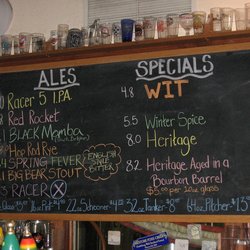 ALES
Racer 5 I.P.A.
Red Rocket
Black Mamba
Hop Red Rye
SPRING FEVER
ENGLISH STYLE BITTER
BIG BEAR STOUT
RACER X
SPECIALS
4.8 WIT
5.5 Winter Spice
8.0 Heritage
8.2 Heritage Aged in a
Bourbon Barrel
$5.00 per 12oz glass
Glass 16oz Pint 22oz Schooner 32oz Tanker 64oz Pitcher